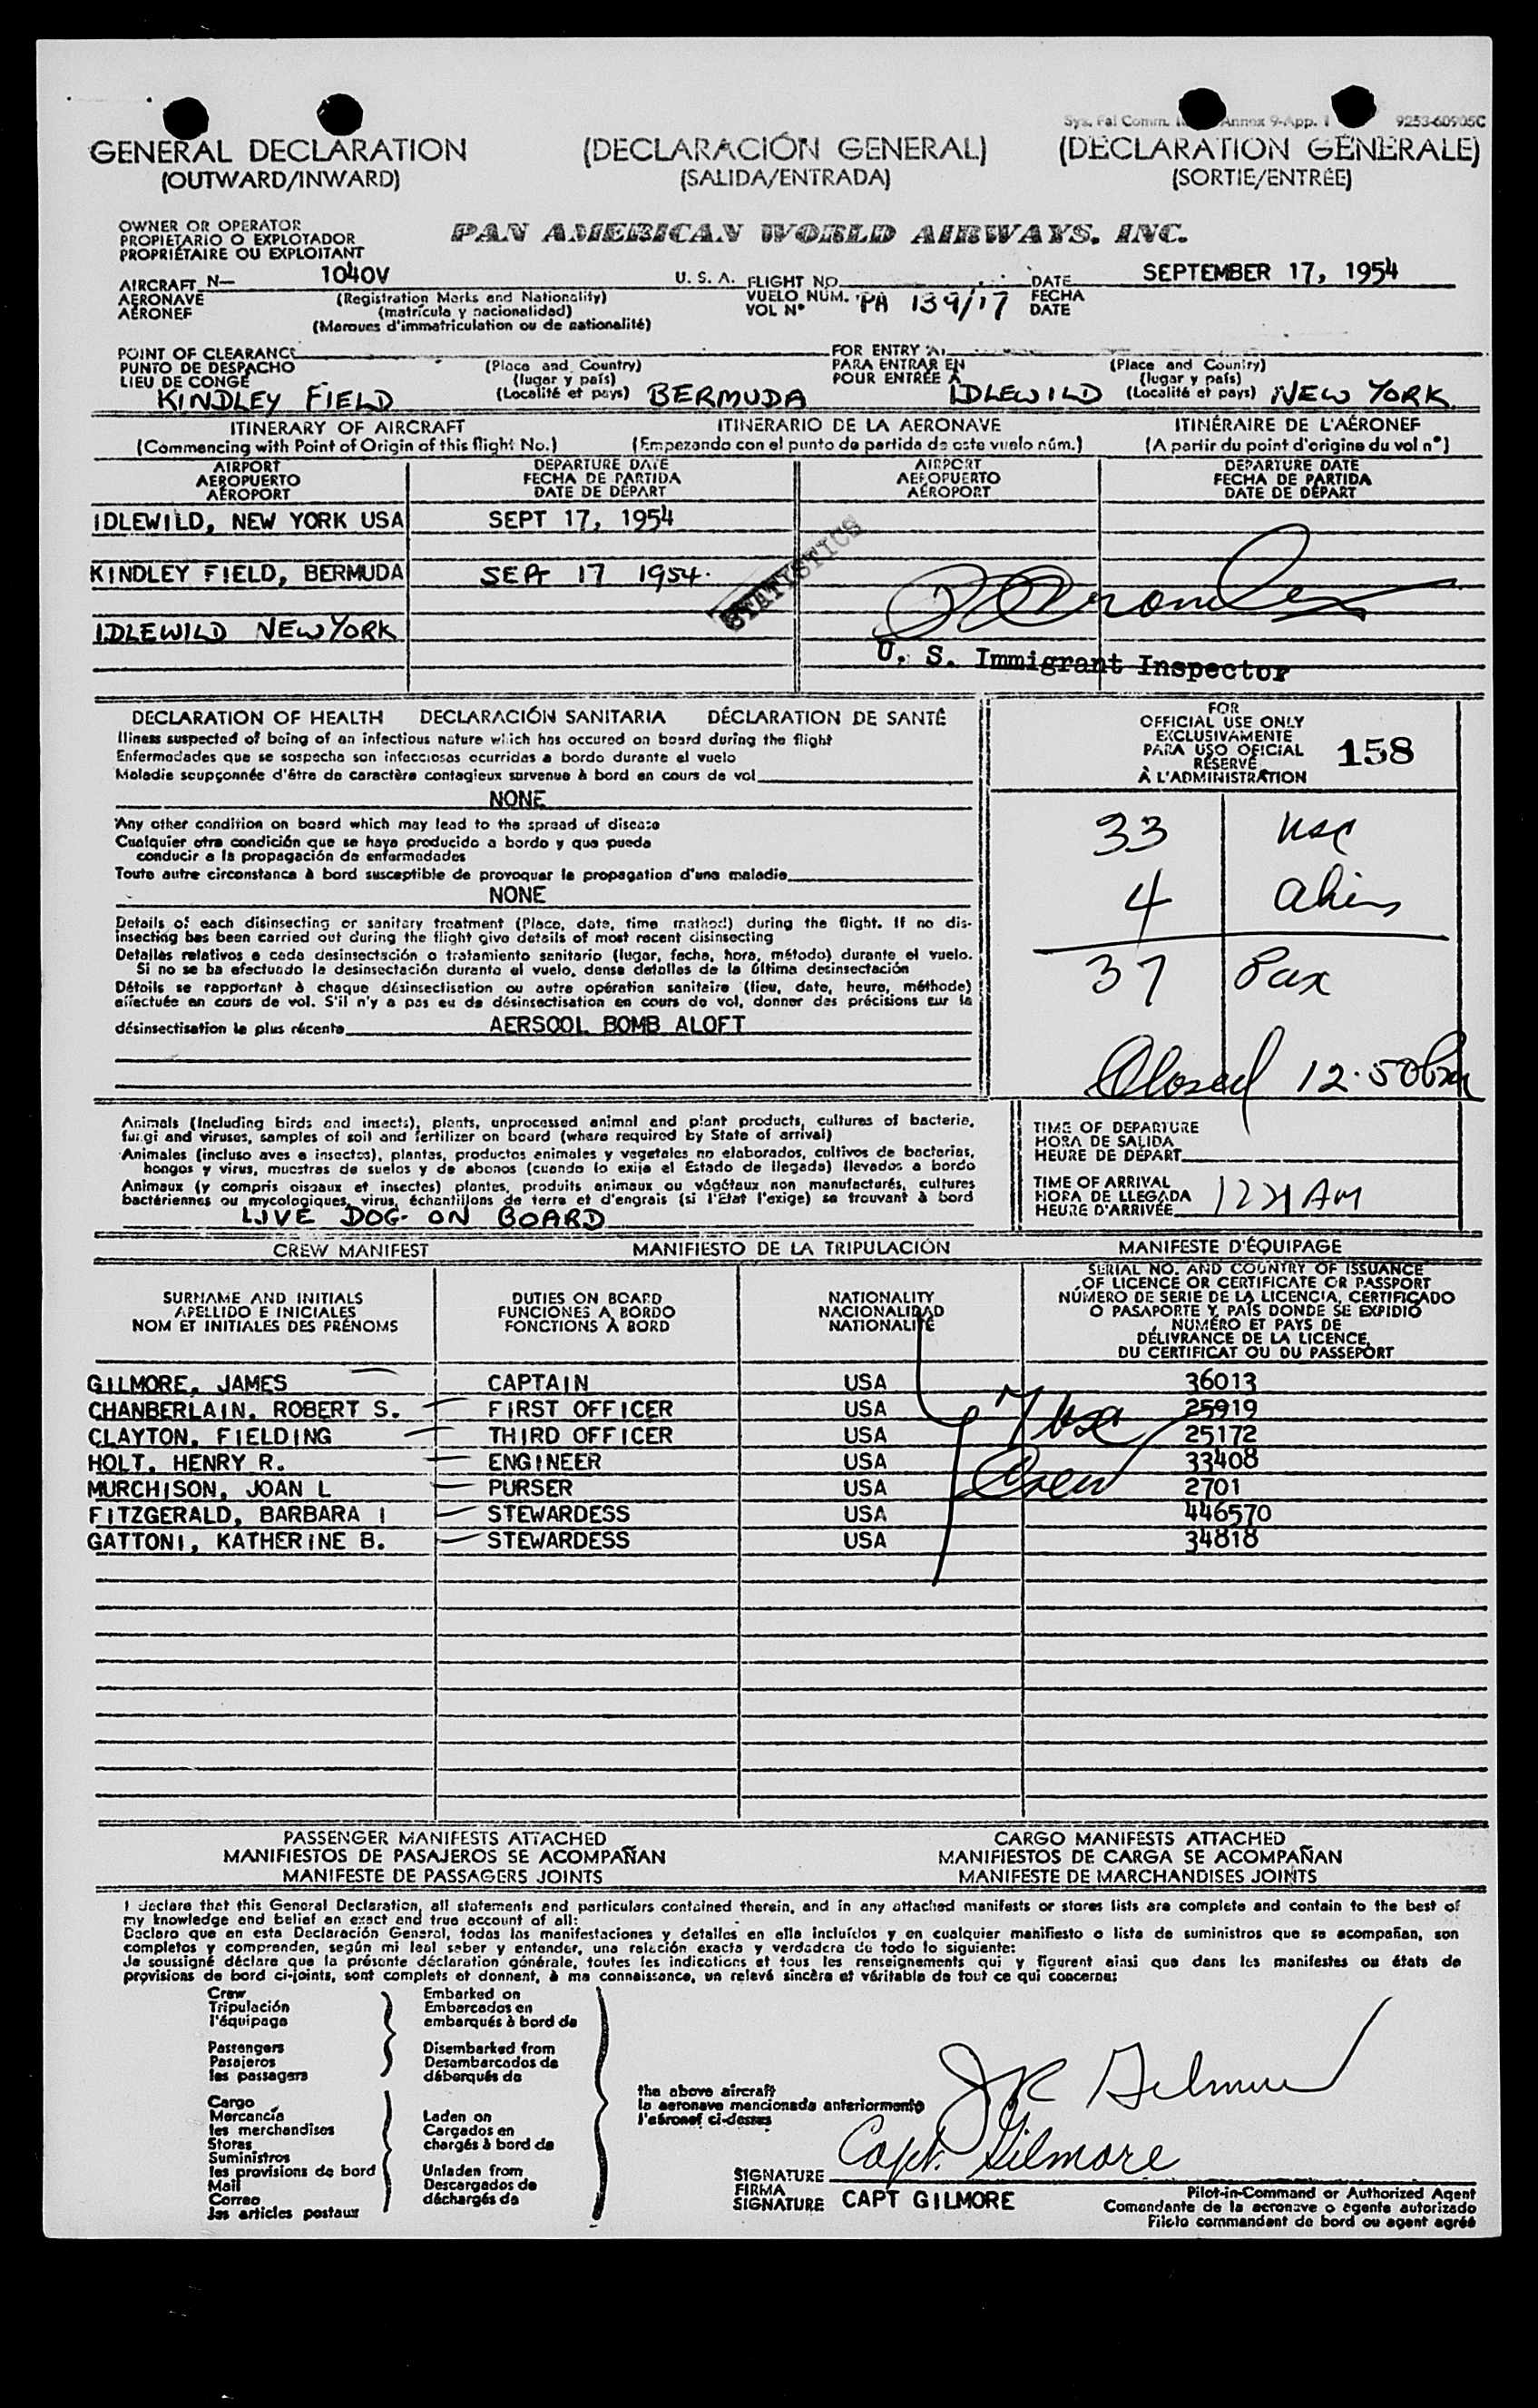 Sys. Fal Comm. Annex 9-App. 1 9253-60905C
GENERAL DECLARATION (DECLARACIÓN GENERAL) (DÉCLARATION GÉNÉRALE)
(OUTWARD/INWARD) (SALIDA/ENTRADA) (SORTIE/ENTRÉE)
OWNER OR OPERATOR
PROPIETARIO O EXPLOTADOR
PROPRIÉTAIRE OU EXPLOITANT
PAN AMERICAN WORLD AIRWAYS, INC.
AIRCRAFT N— 1040V U. S. A. FLIGHT NO. DATE SEPTEMBER 17, 1954
AERONAVE (Registration Marks and Nationality) VUELO NÚM. PA 139/17 FECHA
AÉRONEF (matrícula y nacionalidad) VOL Nº DATE
(Marques d'immatriculation ou de nationalité)
POINT OF CLEARANCE (Place and Country) FOR ENTRY AT (Place and Country)
PUNTO DE DESPACHO (lugar y país) PARA ENTRAR EN (lugar y país)
LIEU DE CONGÉ (Localité et pays) POUR ENTRÉE À (Localité et pays)
KINDLEY FIELD BERMUDA IDLEWILD NEW YORK
ITINERARY OF AIRCRAFT ITINERARIO DE LA AERONAVE ITINÉRAIRE DE L'AÉRONEF
(Commencing with Point of Origin of this flight No.) (Empezando con el punto de partida de este vuelo núm.) (A partir du point d'origine du vol nº)
AIRPORT DEPARTURE DATE AIRPORT DEPARTURE DATE
AEROPUERTO FECHA DE PARTIDA AEROPUERTO FECHA DE PARTIDA
AÉROPORT DATE DE DÉPART AÉROPORT DATE DE DÉPART
IDLEWILD, NEW YORK USA SEPT 17, 1954
STATISTICS
KINDLEY FIELD, BERMUDA SEPT 17 1954.
IDLEWILD NEW YORK
U. S. Immigrant Inspector
DECLARATION OF HEALTH DECLARACIÓN SANITARIA DÉCLARATION DE SANTÉ
Illness suspected of being of an infectious nature which has occured on board during the flight
Enfermedades que se sospecha son infecciosas ocurridas a bordo durante el vuelo
Maladie soupçonnée d'être de caractère contagieux survenue à bord en cours de vol
NONE
Any other condition on board which may lead to the spread of disease
Cualquier otra condición que se haya producido a bordo y que pueda
conducir a la propagación de enfermedades
Toute autre circonstance à bord susceptible de provoquer la propagation d'une maladie
NONE
Details of each disinsecting or sanitary treatment (Place, date, time method) during the flight. If no dis-
insecting has been carried out during the flight give details of most recent disinsecting
Detalles relativos a cada desinsectación o tratamiento sanitario (lugar, fecha, hora, método) durante el vuelo.
Si no se ha efectuado la desinsectación durante el vuelo, dense detalles de la última desinsectación
Détails se rapportant à chaque désinsectisation ou autre opération sanitaire (lieu, date, heure, méthode)
effectuée en cours de vol. S'il n'y a pas eu de désinsectisation en cours de vol, donner des précisions sur la
désinsectisation la plus récente AERSOOL BOMB ALOFT
FOR
OFFICIAL USE ONLY
EXCLUSIVAMENTE
PARA USO OFICIAL
RÉSERVÉ
À L'ADMINISTRATION
158
33 usc
4 aliens
37 Pax
Closed 12.50 pm
Animals (Including birds and insects), plants, unprocessed animal and plant products, cultures of bacteria,
fungi and viruses, samples of soil and fertilizer on board (where required by State of arrival)
Animales (incluso aves e insectos), plantas, productos animales y vegetales no elaborados, cultivos de bacterias,
hongos y virus, muestras de suelos y de abonos (cuando lo exija el Estado de llegada) llevados a bordo
Animaux (y compris oiseaux et insectes) plantes, produits animaux ou végétaux non manufacturés, cultures
bactériennes ou mycologiques, virus, échantillons de terre et d'engrais (si l'Etat l'exige) se trouvant à bord
LIVE DOG ON BOARD
TIME OF DEPARTURE
HORA DE SALIDA
HEURE DE DÉPART
TIME OF ARRIVAL
HORA DE LLEGADA
HEURE D'ARRIVÉE 1221 AM
CREW MANIFEST MANIFIESTO DE LA TRIPULACIÓN MANIFESTE D'ÉQUIPAGE
SURNAME AND INITIALS
APELLIDO E INICIALES
NOM ET INITIALES DES PRÉNOMS
DUTIES ON BOARD
FUNCIONES A BORDO
FONCTIONS À BORD
NATIONALITY
NACIONALIDAD
NATIONALITÉ
SERIAL NO. AND COUNTRY OF ISSUANCE
OF LICENCE OR CERTIFICATE OR PASSPORT
NÚMERO DE SERIE DE LA LICENCIA, CERTIFICADO
O PASAPORTE Y PAÍS DONDE SE EXPIDIÓ
NUMÉRO ET PAYS DE
DÉLIVRANCE DE LA LICENCE,
DU CERTIFICAT OU DU PASSEPORT
GILMORE, JAMES CAPTAIN USA 36013
CHANBERLAIN, ROBERT S. FIRST OFFICER USA 25919
CLAYTON, FIELDING THIRD OFFICER USA 25172
HOLT, HENRY R. ENGINEER USA 33408
MURCHISON, JOAN L PURSER USA 2701
FITZGERALD, BARBARA I STEWARDESS USA 446570
GATTONI, KATHERINE B. STEWARDESS USA 34818
7 usc
Crew
PASSENGER MANIFESTS ATTACHED CARGO MANIFESTS ATTACHED
MANIFIESTOS DE PASAJEROS SE ACOMPAÑAN MANIFIESTOS DE CARGA SE ACOMPAÑAN
MANIFESTE DE PASSAGERS JOINTS MANIFESTE DE MARCHANDISES JOINTS
I declare that this General Declaration, all statements and particulars contained therein, and in any attached manifests or stores lists are complete and contain to the best of
my knowledge and belief an exact and true account of all:
Declaro que en esta Declaración General, todas las manifestaciones y detalles en ella incluídos y en cualquier manifiesto o lista de suministros que se acompañan, son
completos y comprenden, según mi leal saber y entender, una relación exacta y verdadera de todo lo siguiente:
Je soussigné déclare que la présente déclaration générale, toutes les indications et tous les renseignements qui y figurent ainsi que dans les manifestes ou états de
provisions de bord ci-joints, sont complets et donnent, à ma connaissance, un relevé sincère et véritable de tout ce qui concerne:
Crew Embarked on
Tripulación Embarcados en
l'équipage embarqués à bord de
Passengers Disembarked from
Pasajeros Desembarcados de
les passagers débarqués de
the above aircraft
la aeronave mencionada anteriormente
l'aéronef ci-dessus
Cargo
Mercancía Laden on
les merchandises Cargados en
Stores chargés à bord de
Suministros
les provisions de bord Unladen from
Mail Descargados de
Correo déchargés de
les articles postaux
JR Gilmore
Capt. Gilmore
SIGNATURE
FIRMA
SIGNATURE CAPT GILMORE
Pilot-in-Command or Authorized Agent
Comandante de la aeronave o agente autorizado
Pilote commandant de bord ou agent agréé